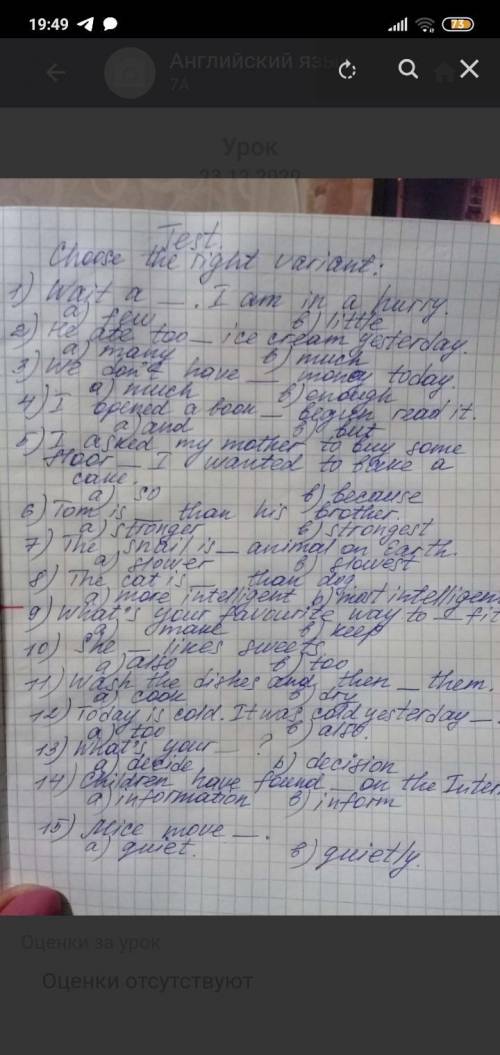 19:49
73
Английский язы
7А
Урок
23.12.2020
Test.
Choose the right variant:
1) Wait a _. I am in a hurry.
a) few b) little
2) He ate too _ ice cream yesterday.
a) many b) much
3) We don't have _ money today.
a) much b) enough
4) I opened a book _ begun read it.
a) and b) but
5) I asked my mother to buy some
floor _ I wanted to bake a
cake.
a) so b) because
6) Tom is _ than his brother.
a) stronger b) strongest
7) The snail is _ animal on Earth.
a) slower b) slowest
8) The cat is _ than dog.
a) more intelligent b) most intelligen
9) What's your favourite way to _ fit
a) make b) keep
10) She _ likes sweets.
a) also b) too
11) Wash the dishes and then _ them.
a) cook b) dry
12) Today is cold. It was cold yesterday _.
a) too b) also.
13) What's your _ ?
a) decide b) decision
14) Children have found _ on the Inter
a) information b) inform
15) Mice move _.
a) quiet. b) quietly.
Оценки за урок
Оценки отсутствуют